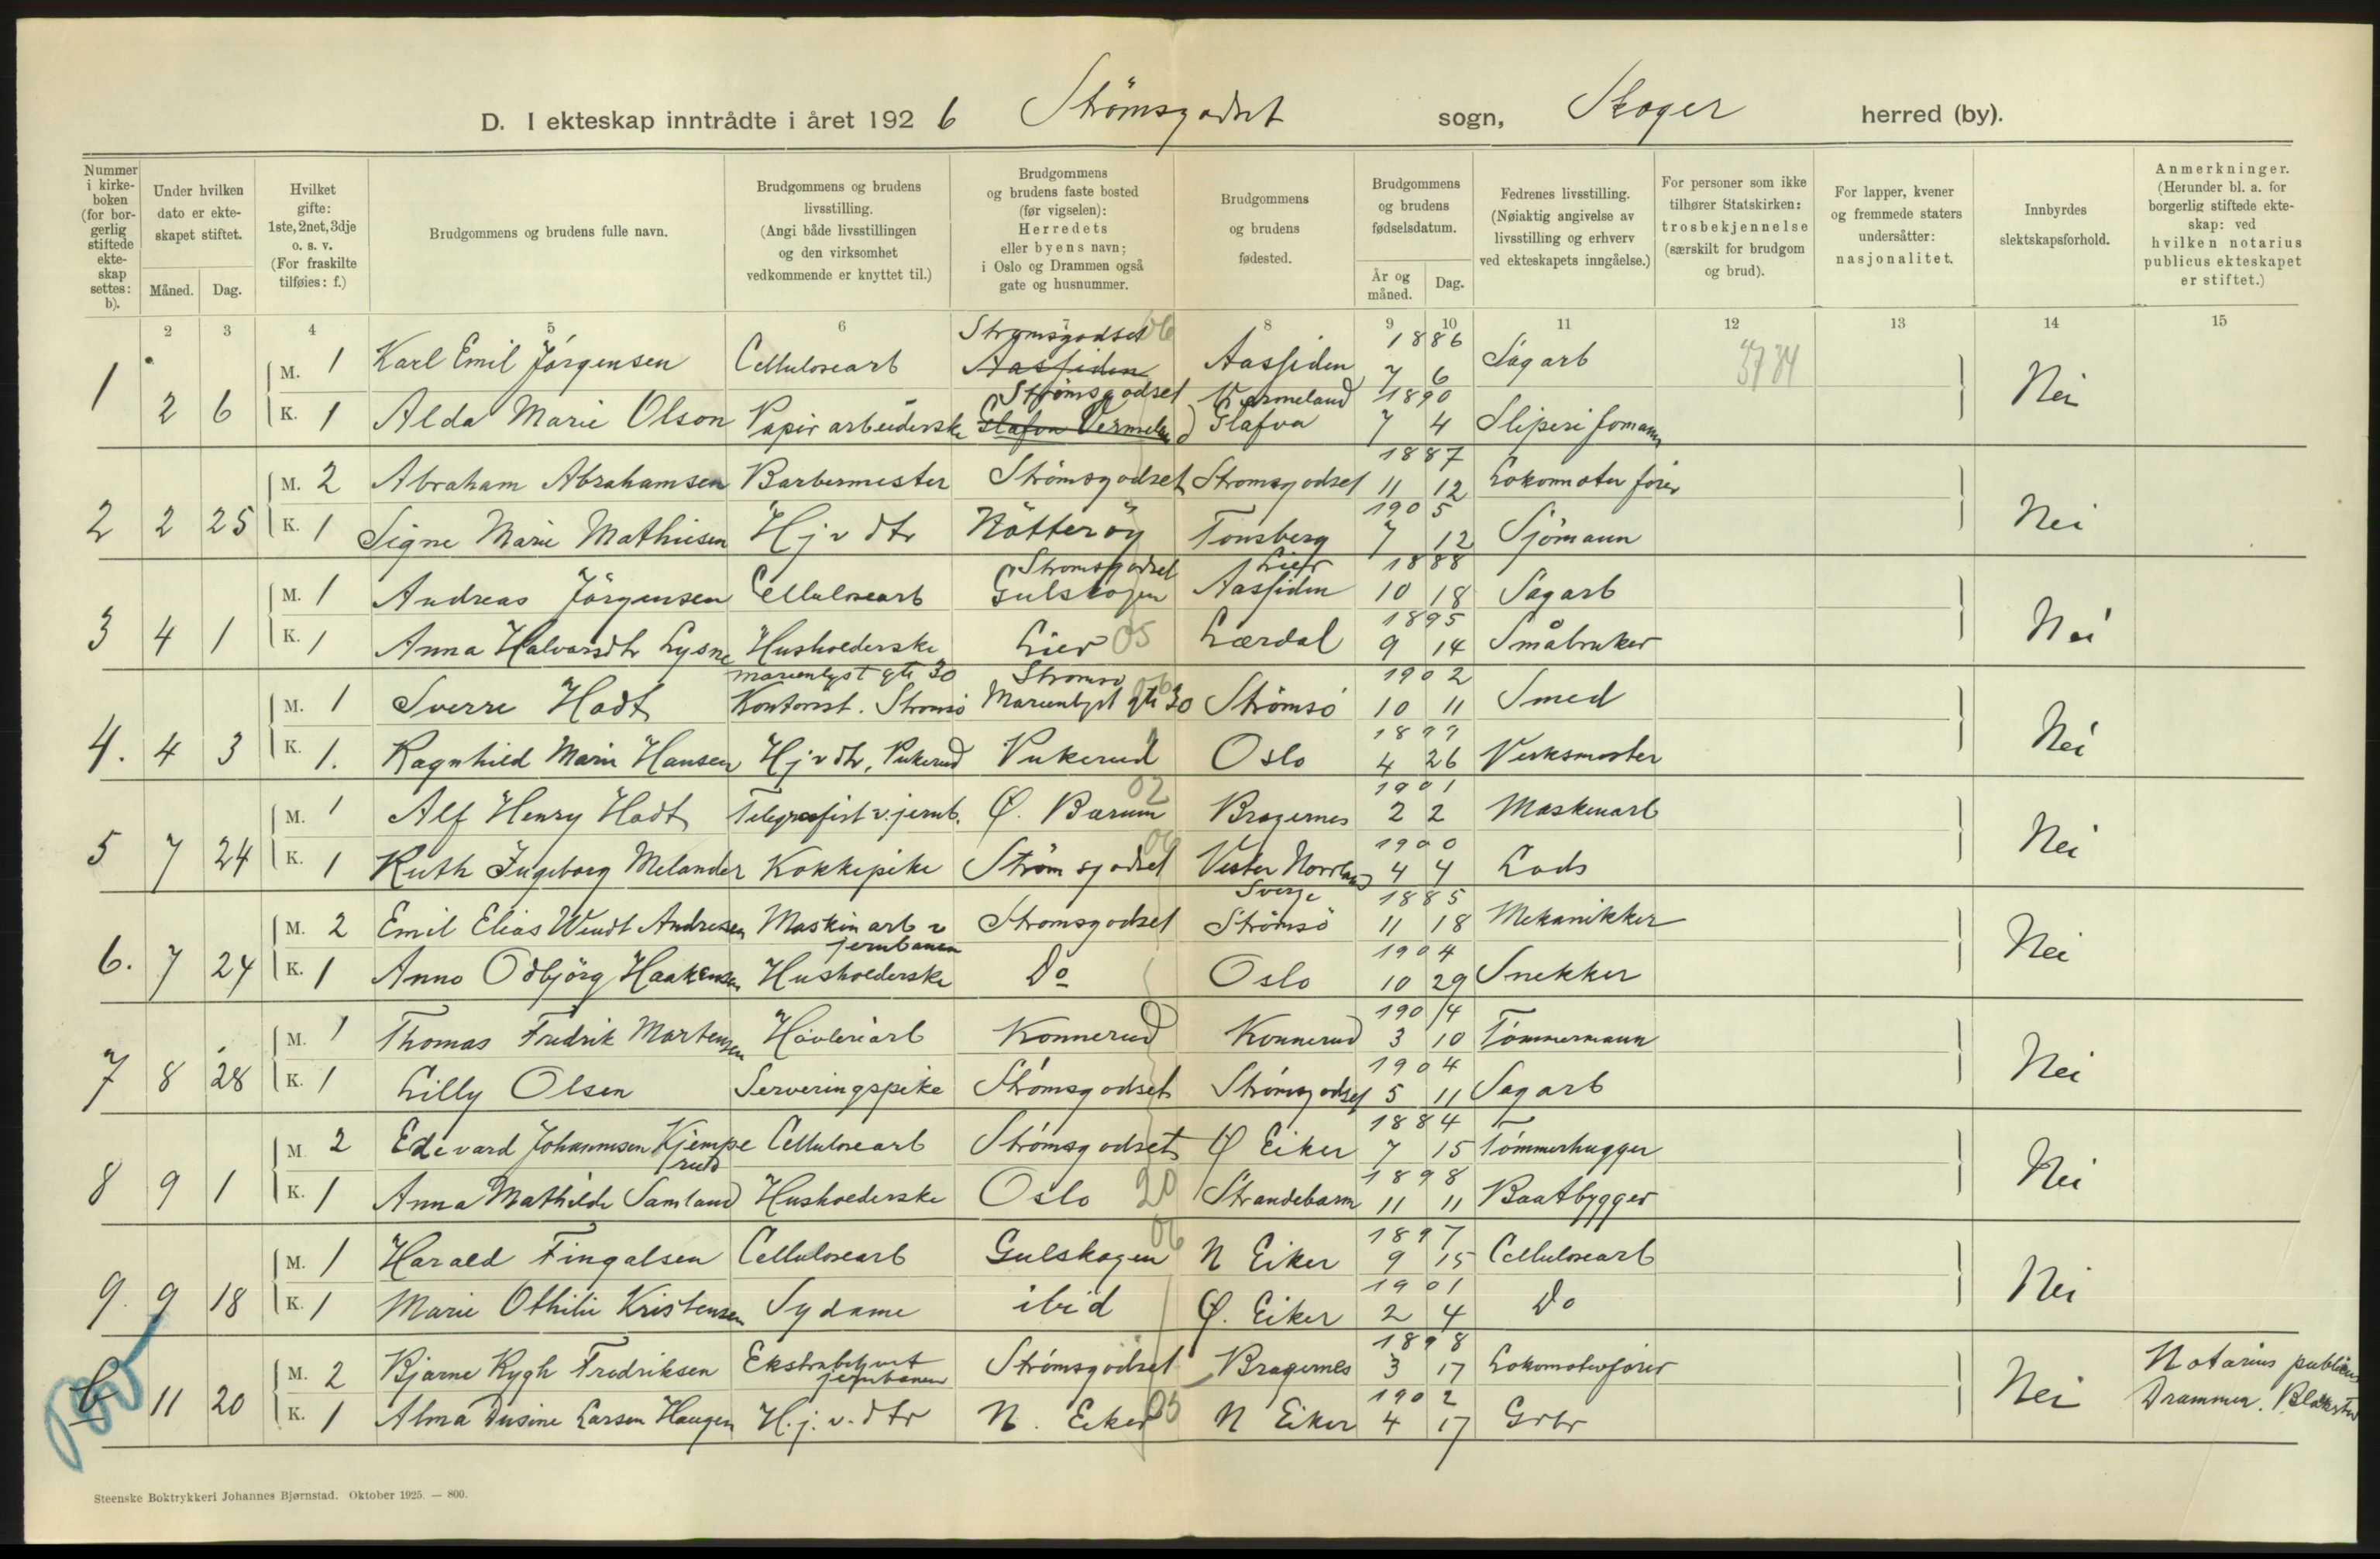 D. I ekteskap inntrådte i året 1926 Strömsgodset sogn, Skoger herred (by).
Nummer i kirkeboken (for borgerlig stiftede ekteskap settes: b).
Under hvilken dato er ekteskapet stiftet.
Måned. Dag.
Hvilket gifte: 1ste, 2net, 3dje o. s. v. (For fraskilte tilføies: f.)
Brudgommens og brudens fulle navn.
Brudgommens og brudens livsstilling. (Angi både livsstillingen og den virksomhet vedkommende er knyttet til.)
Brudgommens og brudens faste bosted (før vigselen): Herredets eller byens navn; i Oslo og Drammen også gate og husnummer.
Brudgommens og brudens fødested.
Brudgommens og brudens fødselsdatum.
År og måned. Dag.
Fedrenes livsstilling. (Nøiaktig angivelse av livsstilling og erhverv ved ekteskapets inngåelse.)
For personer som ikke tilhører Statskirken: trosbekjennelse (særskilt for brudgom og brud).
For lapper, kvener og fremmede staters undersåtter: nasjonalitet.
Innbyrdes slektskapsforhold.
Anmerkninger. (Herunder bl. a. for borgerlig stiftede ekteskap: ved hvilken notarius publicus ekteskapet er stiftet.)
2 3 4 5 6 8 9 10 11 12 13 14 15
1 2 6 M. 1 Karl Emil Jörgensen Cellulosearb Strömsgodset Aassiden 06 Aassiden 1886 7 6 Sagarb Nei
K. 1 Alda Marie Olson Papirarbeiderske Strömsgodset Glafva Vermeland Vermeland Glafva 1890 7 4 Sliperiformann
2 2 25 M. 2 Abraham Abrahamsen Barbermester Strömsgodset Strömsgodset 1887 11 12 Lokomotivförer Nei
K. 1 Signe Marie Mathiesen Hj v dtr Nötteröy Tonsberg 1905 7 12 Sjömann
3 4 1 M. 1 Andreas Jörgensen Cellulosearb Strömsgodset Gulskogen Lier Aassiden 1888 10 18 Sagarb Nei
K. 1 Anna Halvarsdtr Lysne Husholderske Lier 05 Lærdal 1895 9 14 Småbruker
4. 4 3 M. 1 Sverre Hodt Marienlyst gt 30 Kontorist. Strömsö Strömsö Marienlyst gt 30 06 Strömsö 1902 10 11 Smed Nei
K. 1. Ragnhild Marie Hansen Hj v dtr, Pukerud Pukerud Oslo 1899 4 26 Verksmester
5 7 24 M. 1 Alf Henry Hodt Telegrafist v. jernb. Ø. Bærum 02 Bragernes 1901 2 2 Maskinarb Nei
K. 1 Ruth Ingeborg Melander Kokkepike Strömsgodset 06 Vester Norrland Sverge 1900 4 4 Lods
6. 7 24 M. 2 Emil Elias Wendt Andresen Maskinarb v jernbanen Strömsgodset Strömsö 1885 11 18 Mekanikker Nei
K. 1 Anna Odbjörg Haakensen Husholderske Do Oslo 1904 10 29 Snekker
7 8 28 M. 1 Thomas Fredrik Martensen Hövleriarb Konnerud Konnerud 1904 3 10 Tömmermann Nei
K. 1 Lilly Olsen Serveringspike Strömsgodset Strömsgodset 1904 5 11 Sagarb
8 9 1 M 2 Edevard Johannesen Kjemperud Cellulosearb Strömsgodset Ø Eiker 1884 7 15 Tömmerhugger Nei
K. 1 Anna Mathilde Samland Husholderske Oslo 20 Strandebarm 1898 11 11 Baatbygger
9. 9 18 M. 1 Harald Fingalsen Cellulosearb Gulskogen 06 N Eiker 1897 9 15 Cellulosearb Nei
K. 1 Marie Othilie Kristensen Sydame ibid Ø. Eiker 1901 2 4 Do
b 11 20 M. 2 Bjarne Rygh Fredriksen Ekstrabetjent jernbanen Strömsgodset Bragernes 1898 3 17 Lokomotivförer Nei Notarius publicus
K. 1 Alma Dusine Larsen Haugen H.j. v. dtr N. Eiker 05 N Eiker 1902 4 17 Grbr Drammen.
Steenske Boktrykkeri Johannes Bjørnstad. Oktober 1925. — 800.